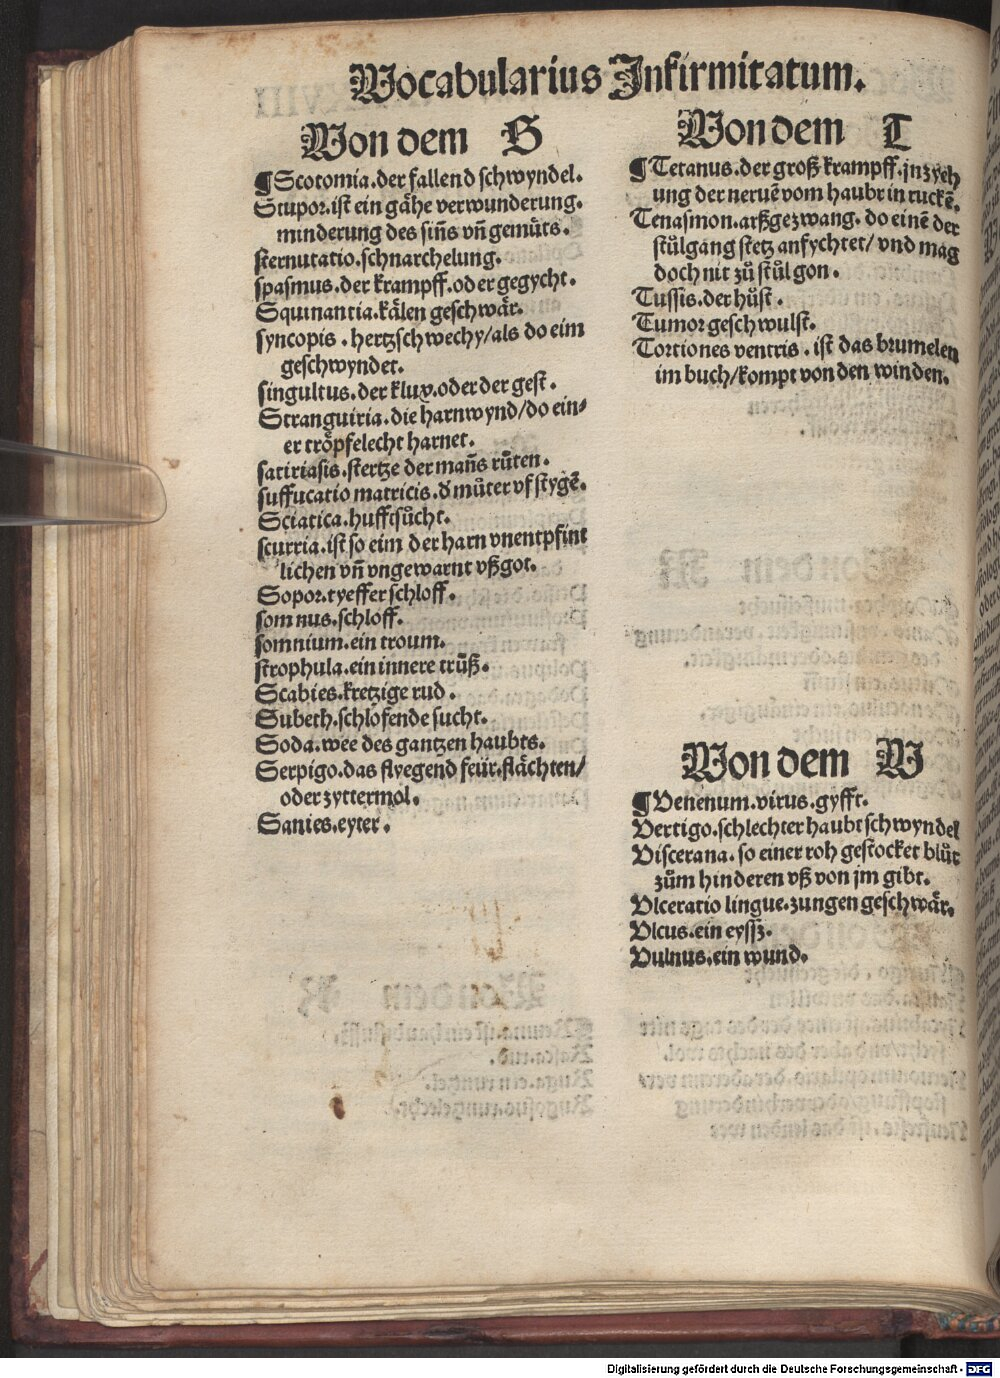 Vocabularius Infirmitatum.
Von dem S
¶Scotomia.der fallend schwyndel.
Stupor.ist ein gähe verwunderung.
minderung des siñs vñ gemüts.
sternutatio.schnarchelung.
spasmus.der krampff.oder gegycht.
Squinantia.kälen geschwär.
syncopis.hertzschwechy/als do eim
geschwyndet.
singultus.der klux.oder der gest.
Stranguiria.die harnwynd/do ein⸗
er tröpfelecht harnet.
satiriasis.stertze der mañs růten.
suffucatio matricis.d' můter vf stygē.
Sciatica.hufftsůcht.
scurria.ist so eim der harn vnentpfint
lichen vñ vngewarnt vßgot.
Sopor.tyeffer schloff.
somnus.schloff.
somnium.ein troum.
strophula.ein innere trůß.
Scabies.kretzige rud.
Subeth.schlofende sucht.
Soda.wee des gantzen haubts.
Serpigo.das flyegend feür.flächten/
oder zyttermol.
Sanies.eyter.
Von dem T
¶Tetanus.der groß krampff.jnzyeh
ung der neruē vom haubt in ruckē.
Tenasmon.arßgezwang.do einē der
stůlgang stetz anfychtet/vnd mag
doch nit zů stůl gon.
Tussis.der hůst.
Tumor geschwulst.
Tortiones ventris.ist das brumelen
im buch/kompt von den winden.
Von dem V
¶Venenum.virus.gyfft.
Vertigo.schlechter haubt schwyndel
Viscerana.so einer roh gestocket blůt
zům hinderen vß von jm gibt.
Vlceratio lingue.zungen geschwär.
Vlcus.ein eyssz.
Vulnus.ein wund.
Digitalisierung gefördert durch die Deutsche Forschungsgemeinschaft - DFG